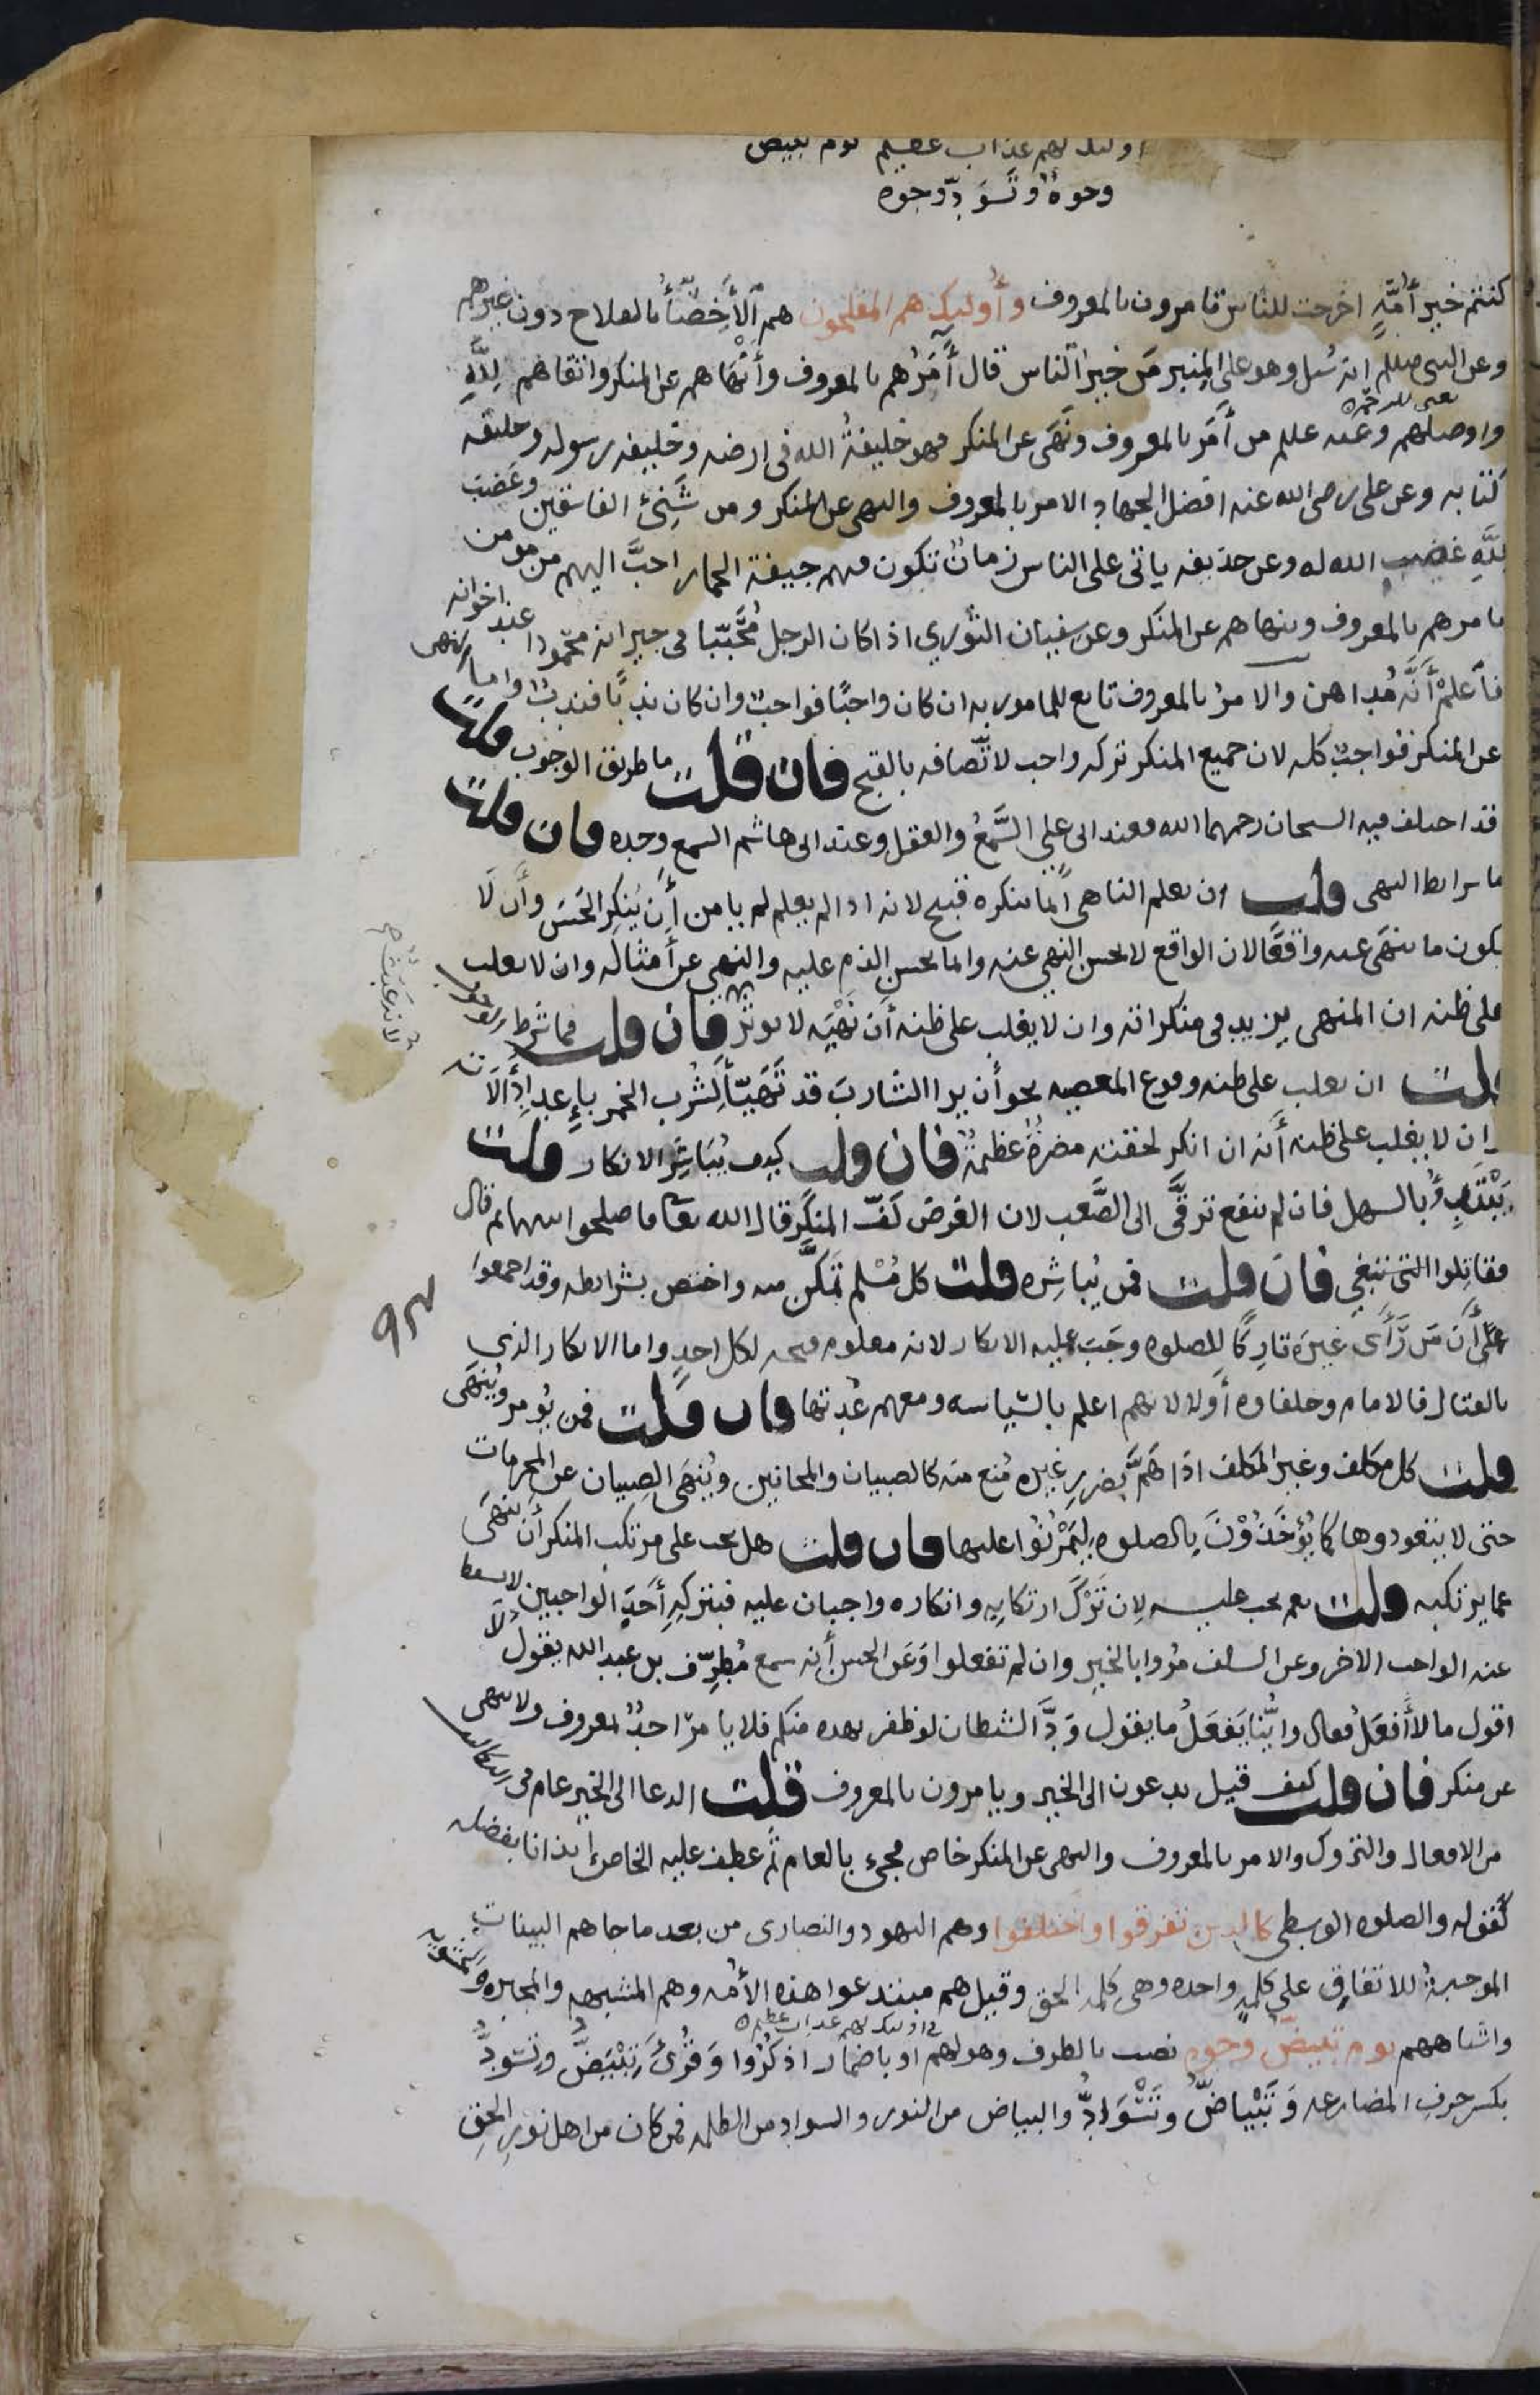 اولىك لهم عذاب عظيم يوم تبيض
وجوهٌ وتَسْوَدّ وجوه
كنتم خير أمّةٍ اخرجت للناس تامرون بالمعروف وأُوليك هم المفلحون هم الأَخِصّاءُ بالفلاح دون غيرهم
وعن النبى صللم انه سُىل وهو على المِنبر مَن خيرُ الناس قال آمَرُهم بالمعروف وأَنْهَاهم عن المنكر واتقاهم لِلَّهِ
واوصلهم وعنه علىلم من أَمَر بالمعروف ونَهَى عن المنكر فهو خليفةُ الله فى ارضه وخليفه رسوله وخليفه
كتابه وعن على رضى الله عنه افضل الجهاد الامر بالمعروف والنهى عن المنكر ومن شَنِئَ الفاسقين وغضب
لِلَّهِ غضب الله له وعن حذيفه ياتى على الناس زمانٌ تكون فيهم جيفة الحمار احبَّ اليهم من مومن
يامرهم بالمعروف وينهاهم عن المنكر وعن سفيان الثوري اذا كان الرجل مُحَبَّبًا فى جيرانه محمودا عند اخوانه
فاعلمْ أَنَّه مُداهن والامرُ بالمعروف تابع للمامور به ان كان واجبًا فواجبٌ وان كان ندبًا فندبٌ واما النهى
عن المنكر فواجبٌ كله لان جميع المنكر تركه واجب لاتّصافه بالقبح فان قلت ما طريق الوجوب قلت
قد اختلف فيه الشيخان رحمهما الله فعند ابى علي السَّمعُ والعقل وعند ابى هاشم السمع وحده فان قلت
ما شرايط النهى قلت ان يعلم الناهى أنّ ما ينكره قبيح لانه اذا لم يعلم لم يامن أَن يُنكِر الحَسَن وأَن لا
يكون ما ينهى عنه واقعًا لان الواقع لا يحسن النهي عنه وانما يحسن الذم عليه والنهى عن أمثاله وان لا يغلب
على ظنه ان المنهى يزيد فى منكراته وان لا يغلب على ظنه أن نَهْيَه لا يوثر فان قلت فما شرط الوجوب
قلت ان يغلب على ظنه وقوع المعصيه نحو أن يرا الشاربَ قد تَهَيّأَ لشُرب الخمر بإِعدادِ آلاته
وان لا يغلب على ظنه أنه ان انكر لحقته مضرةٌ عظيمةٌ فان قلت كيف يُبَاشِر الانكار قلت
يَبْتَدِئُ بالسهل فان لم ينفع تَرقَّى الى الصَّعب لان الغرض كَفّ المنكر قال الله تعا فاصلحوا بينهما ثم قال
فقاتِلوا التى تبغى فان قلت فمن يُباشِره قلت كل مُسْلم تمكَّن منه واختص بشرايطه وقد اجمعوا
على أنّ مَن رَأَى غيرَه تارِكًا للصلوه وجَبَ عليه الانكار لانه معلوم قبحه لكل احدٍ واما الانكار الذى
بالقتال فالامام وخلفاوه أولا لانهم اعلم بالسّياسه ومعهم عُدتها فان قلت فمن يُومر ويُنهَى
قلت كل مكلف وغير المكلف اذا هَمَّ بضررِ غيره مُنع منه كالصبيان والمجانين ويُنهَى الصبيان عن المحرمات
حتى لا يتعودوها كما يُؤخَذُوْنَ بالصلوه لِيَمْرُنُوا عليها فان قلت هل يجب على مرتكب المنكر أن يَنهَى
عما يرتكبه قلت نعم يجب عليه لان تَرْكَ ارتكابِهِ وانكاره واجبان عليه فبتركِهِ أَحَدِ الواجبين لا يسقط
عنه الواجب الاخر وعن السلف مُروا بالخير وان لم تفعلوا وعَن الحسن أنه سمع مُطرِّف بن عبد الله يقول لا
اقول ما لا أَفعَلُ فقال وايُّنا يَفعَلُ ما يقول وَدَّ الشيطان لو ظفر بهذه منكم فلا يامر احدٌ بمعروف ولا ينهى
عن منكر فان قلت كيف قيل يدعون الى الخير ويامرون بالمعروف قلت الدعا الى الخير عام فى التكاليف
من الافعال والتروك والامر بالمعروف والنهى عن المنكر خاص فجىء بالعام ثم عطف عليه الخاص إيذانا بفضله
كقوله والصلوه الوسطى كالذين تفرقوا واختلفوا وهم اليهود والنصارى من بعد ما جاهم البينات
الموجبةُ للاتفاق على كلمةٍ واحده وهى كلمه الحق وقيل هم مبتدعوا هذه الأمه وهم المشبهه والمجبره والحشويه
واشباههم يوم تبيضّ وجوه نصب بالظرف وهو لهم او باضمار اذكُرُوا وَقُرِئَ تِبْيَضُّ وتِسْوَدُّ
بكسر حرف المضارعه وَتَبْيَاضُّ وتَسْوَادُّ والبياض من النور والسواد من الظلمه فمن كان من اهل نورِ الحقِ